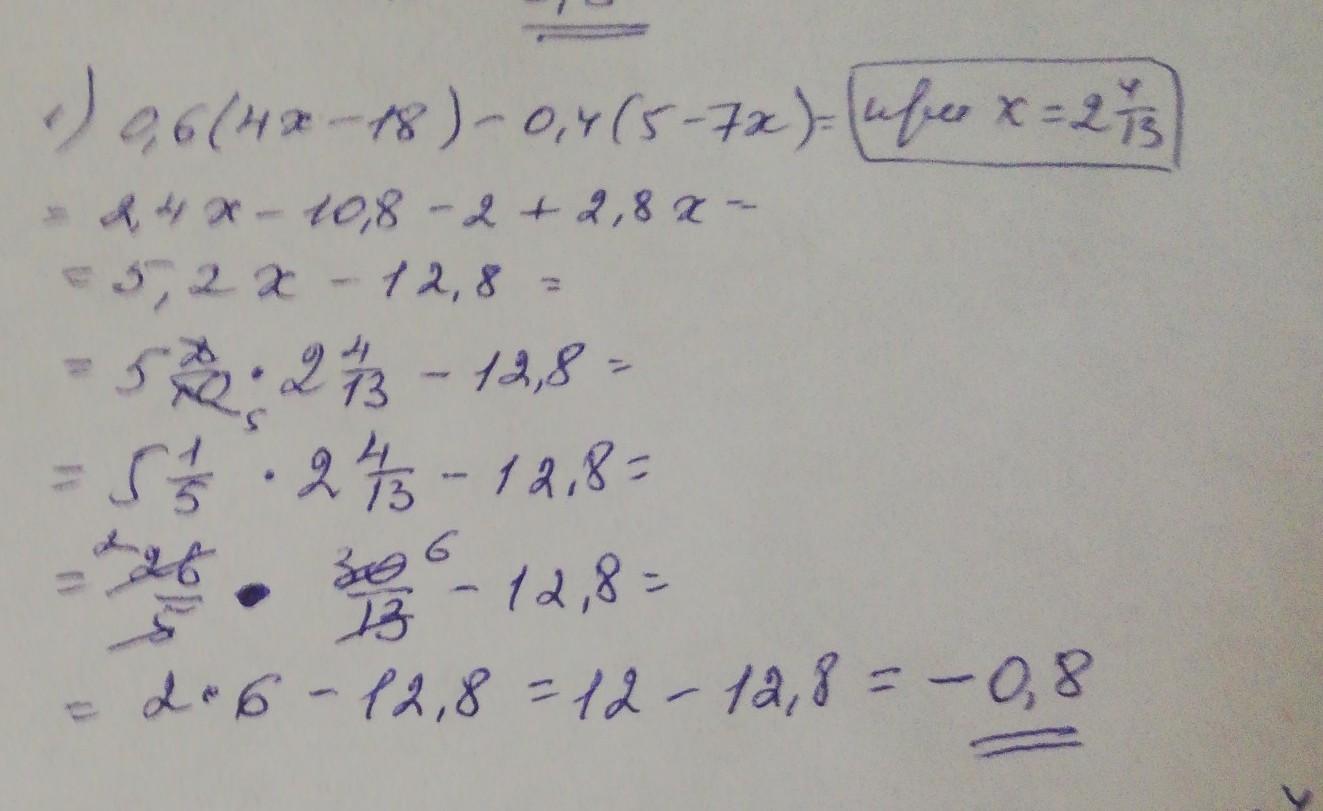 1) 0,6(4x-18)-0,4(5-7x)= при x=2 4/13
= 2,4x-10,8-2+2,8x=
= 5,2x-12,8=
= 5 2/10 5 · 2 4/13 - 12,8=
= 5 1/5 · 2 4/13 - 12,8=
= 2 26/5 · 30/13 6 - 12,8=
= 2·6-12,8=12-12,8=-0,8